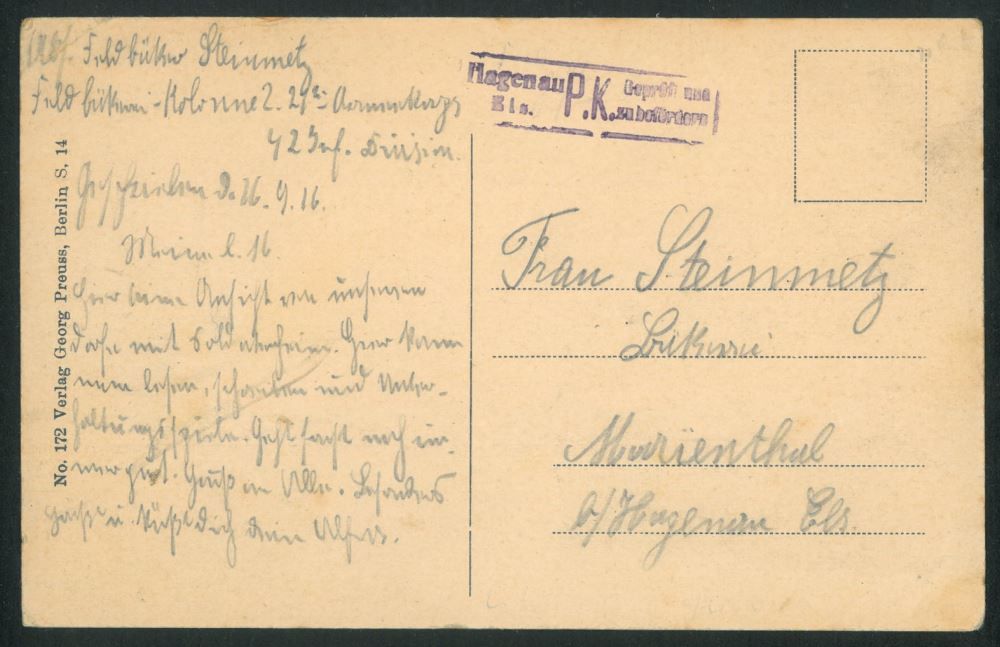 Abs. Feldbäcker Steinmetz
Feldbäckerei-Kolonne 2. 21. Armeekorps
42 Inf. Division.
Geschrieben d. 16. 9. 16.
Meine l. M.
Hier eine Ansicht von unserem
Dorfe mit Soldatenheim. Hier kann
man lesen, schreiben und Unter-
haltungsspiele. Geht sonst noch im-
mer gut. Gruß an Alle. Besonders
grüßt u. küßt Dich Dein Alfred.
No. 172 Verlag Georg Preuss, Berlin S, 14
Hagenau P.K. Geprüft und
Els. zu befördern
Frau Steinmetz
Bäkerei
Marienthal
b/Hagenau Els.